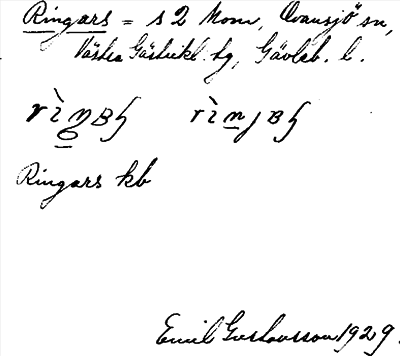 Ringars = s 2 Mom, Ovansjö sn,
Västra Gästrikl. tg, Gävleb. l.
Ringars kb
Emil Gustavsson 1929.